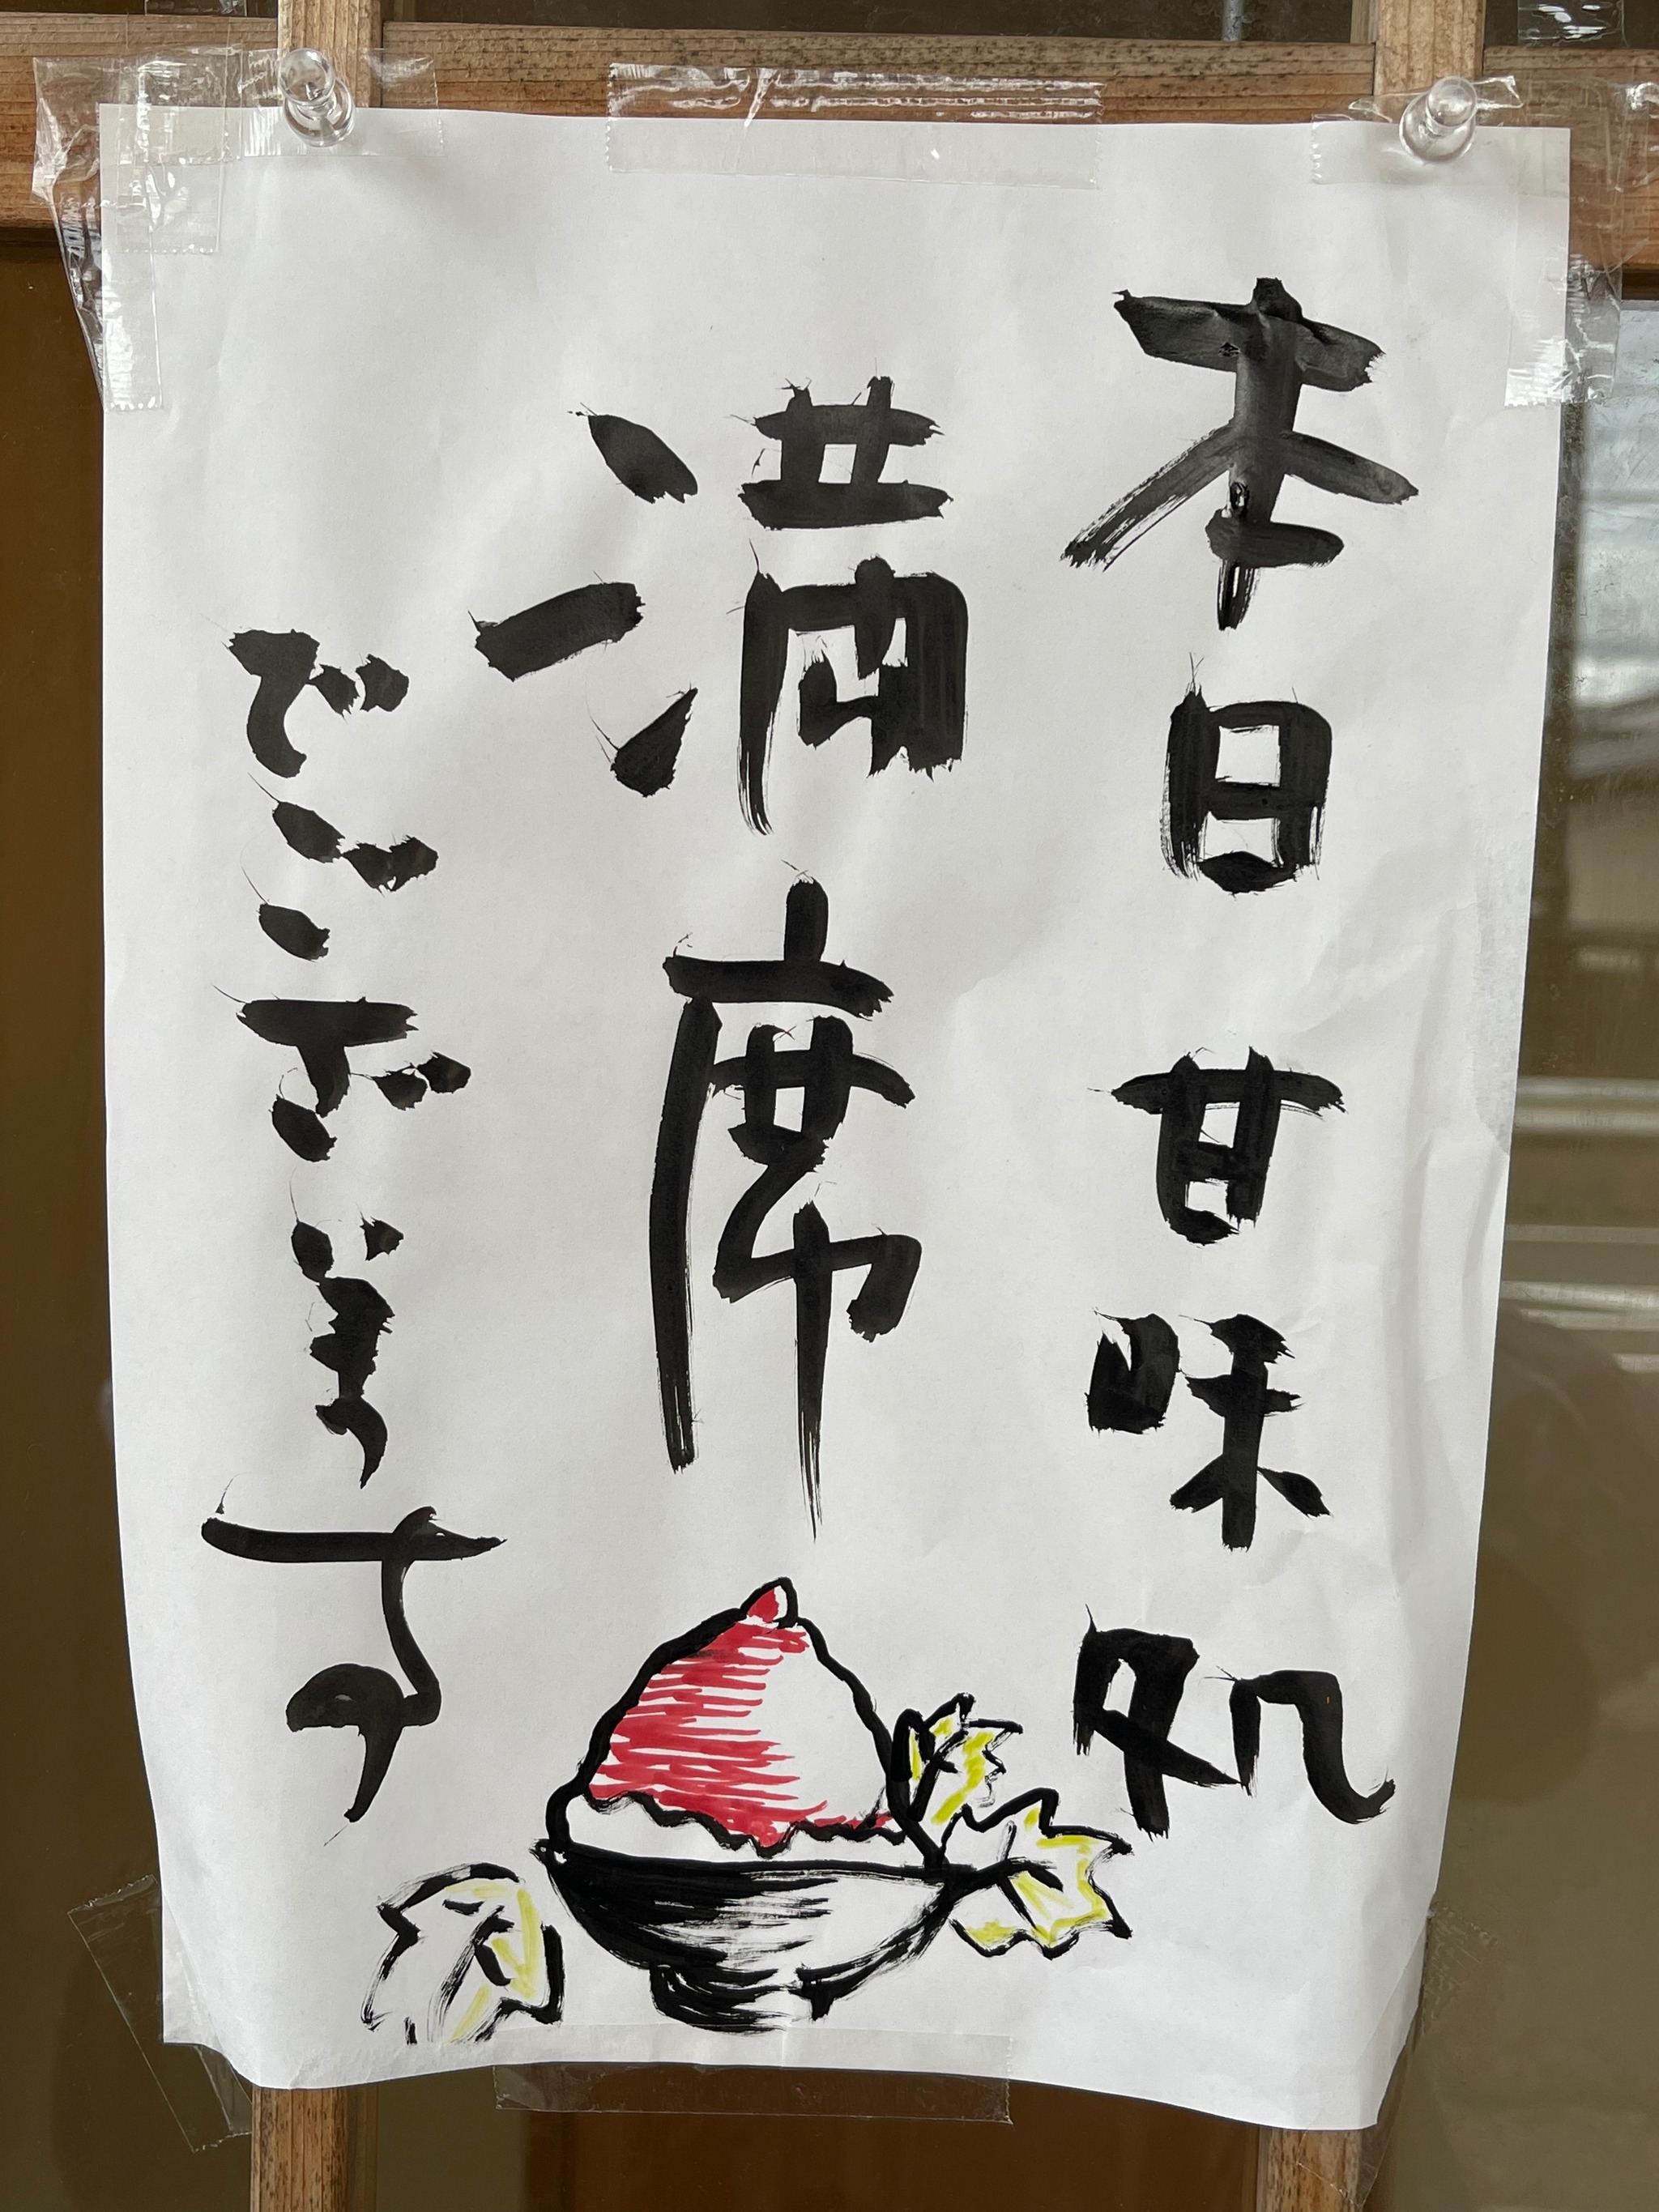 本日甘味処
満席
でございます